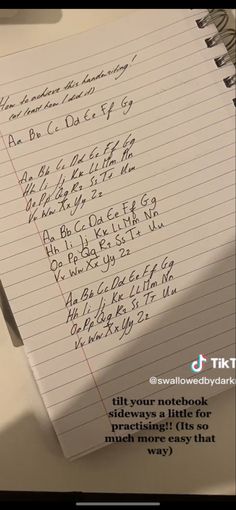 How to achieve this handwriting!
(at least how I did it)
Aa Bb Cc Dd Ee Ff Gg
Aa Bb Cc Dd Ee Ff Gg
Hh Ii Jj Kk Ll Mm Nn
Oo Pp Qq Rr Ss Tt Uu
Vv Ww Xx Yy Zz
Aa Bb Cc Dd Ee Ff Gg
Hh Ii Jj Kk Ll Mm Nn
Oo Pp Qq Rr Ss Tt Uu
Vv Ww Xx Yy Zz
Aa Bb Cc Dd Ee Ff Gg
Hh Ii Jj Kk Ll Mm Nn
Oo Pp Qq Rr Ss Tt Uu
Vv Ww Xx Yy Zz
TikT
@swallowedbydark
tilt your notebook
sideways a little for
practising!! (Its so
much more easy that
way)